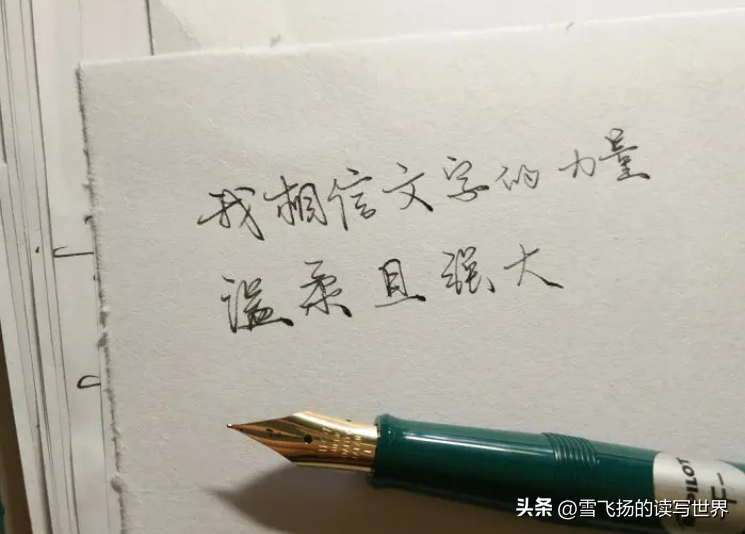 我相信文字的力量
温柔且强大
PILOT
头条 @雪飞扬的读写世界